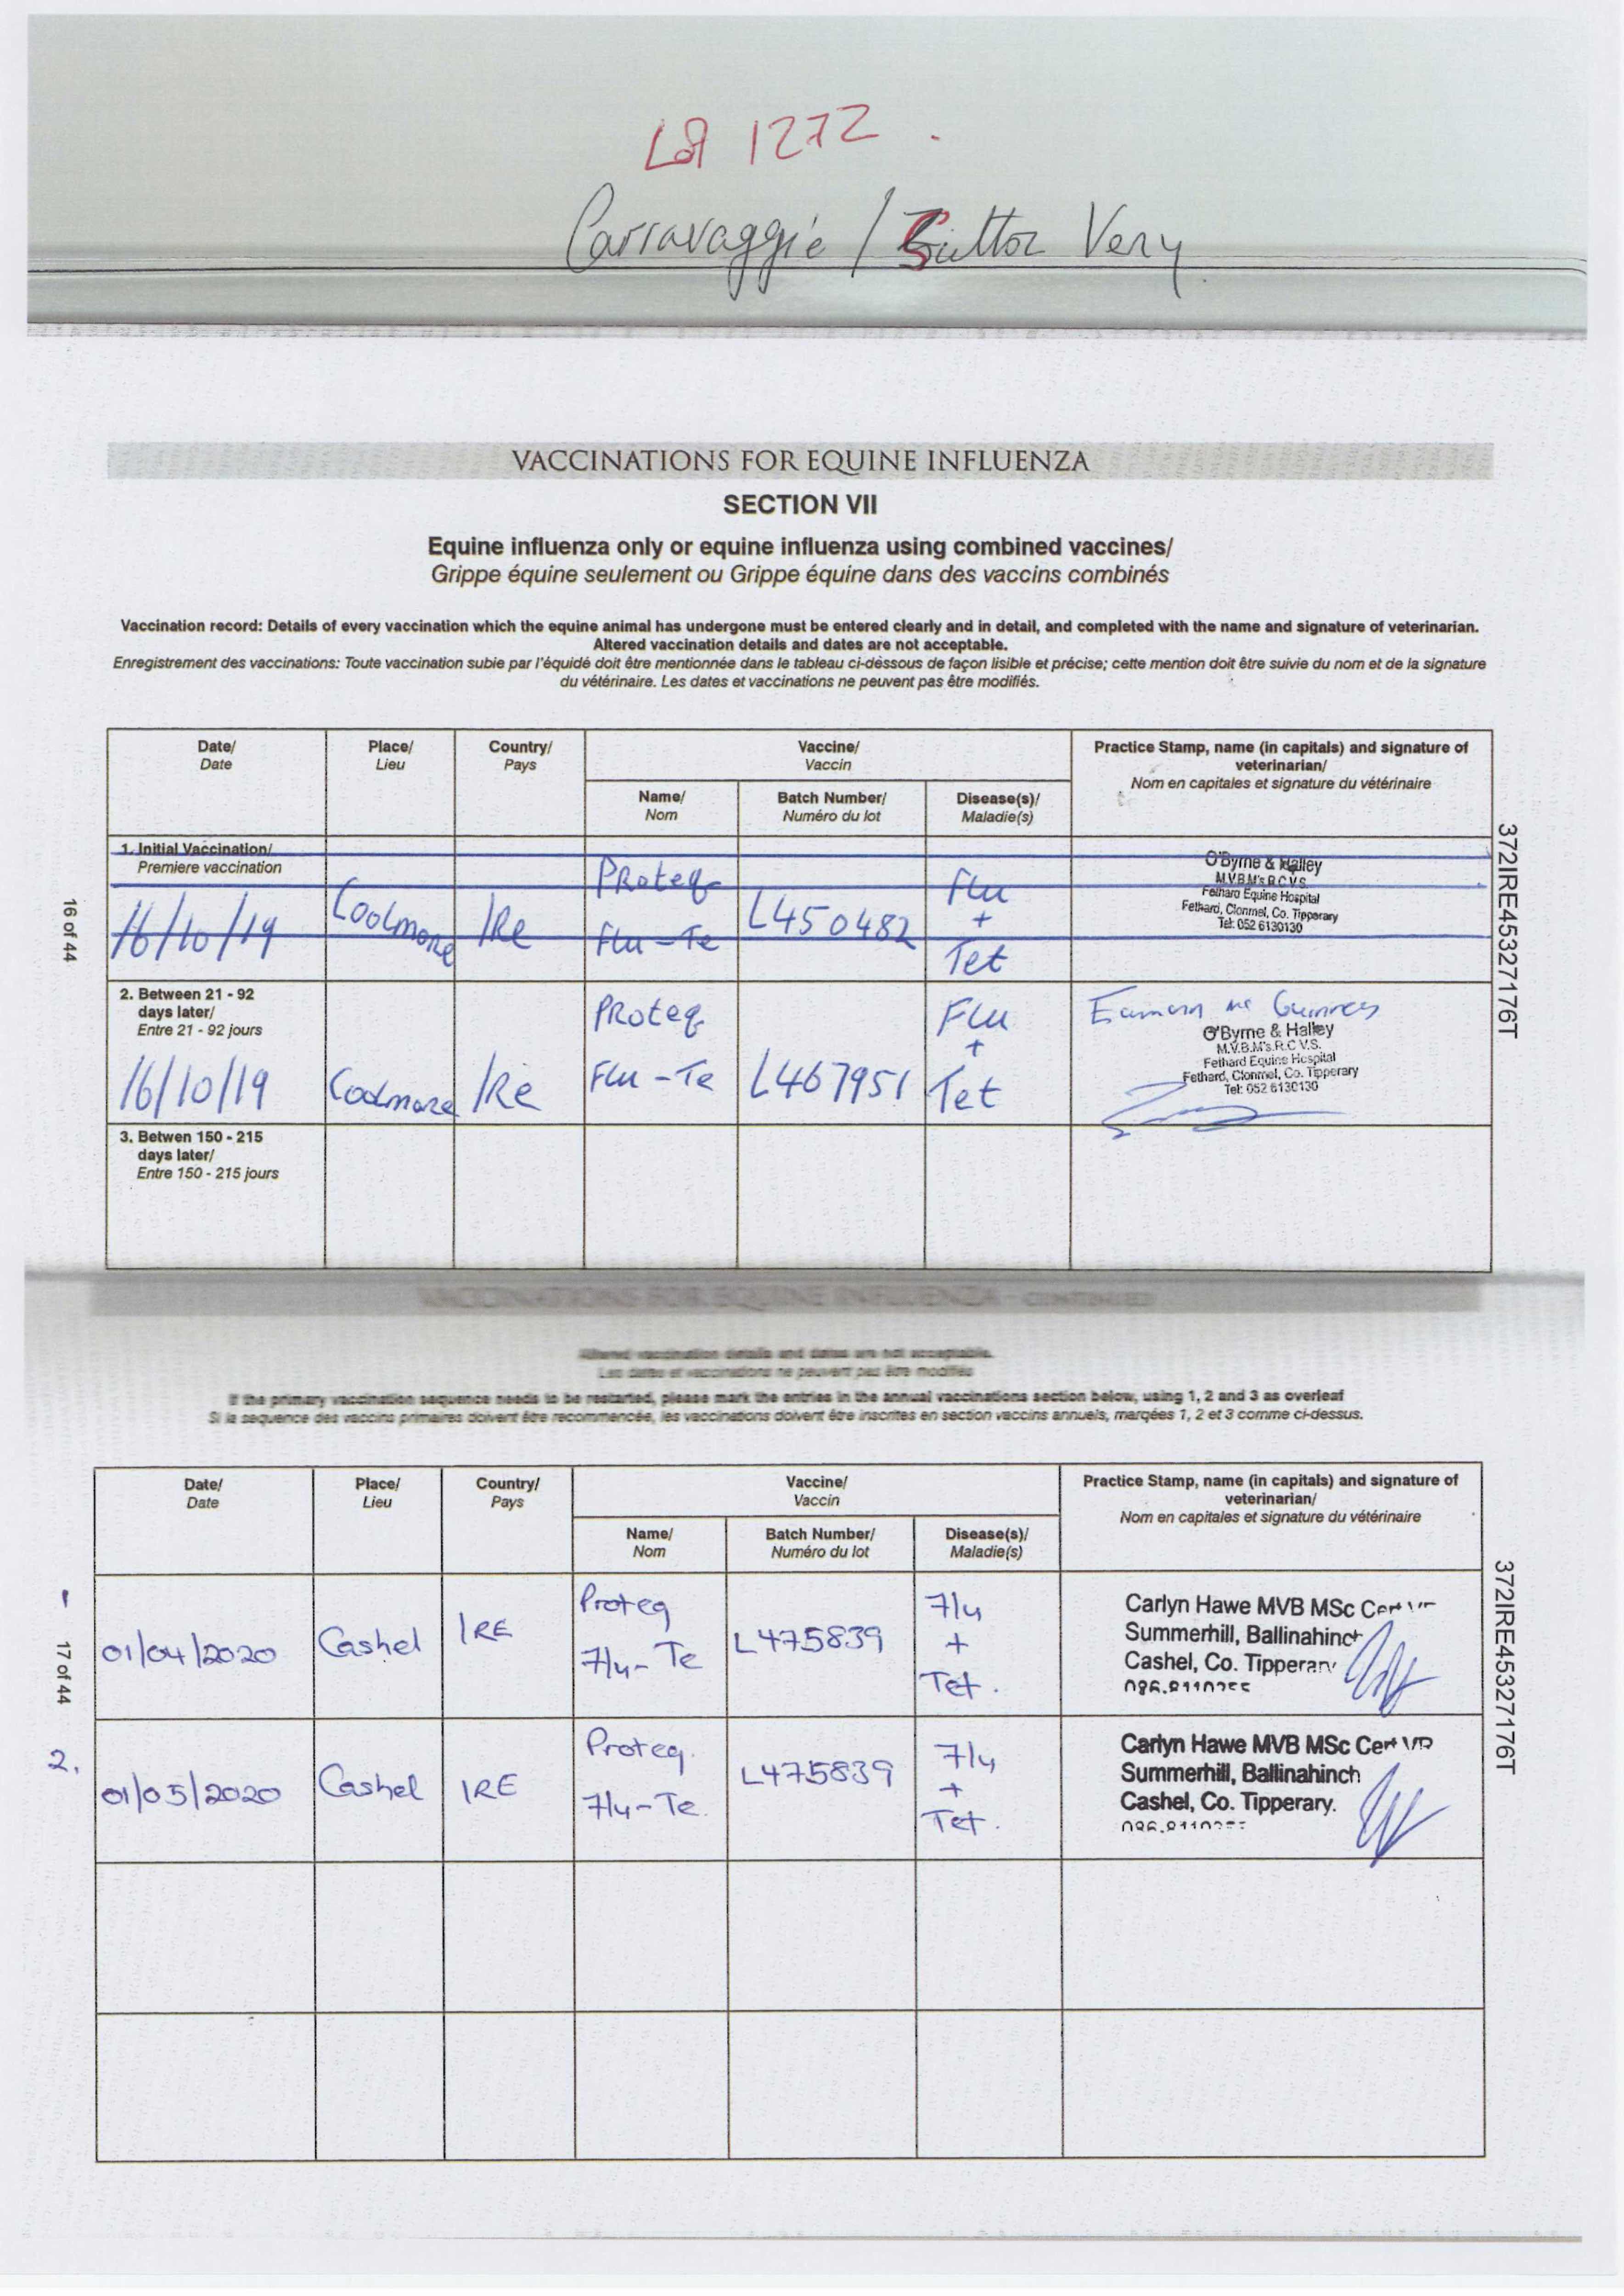 Lot 1272.
Carravaggie / Buttor Very
VACCINATIONS FOR EQUINE INFLUENZA
SECTION VII
Equine influenza only or equine influenza using combined vaccines/
Grippe équine seulement ou Grippe équine dans des vaccins combinés
Vaccination record: Details of every vaccination which the equine animal has undergone must be entered clearly and in detail, and completed with the name and signature of veterinarian.
Altered vaccination details and dates are not acceptable.
Enregistrement des vaccinations: Toute vaccination subie par l'équidé doit être mentionnée dans le tableau ci-dessous de façon lisible et précise; cette mention doit être suivie du nom et de la signature
du vétérinaire. Les dates et vaccinations ne peuvent pas être modifiés.
Date/ Place/ Country/ Vaccine/ Practice Stamp, name (in capitals) and signature of
Date Lieu Pays Vaccin veterinarian/
Nom en capitales et signature du vétérinaire
Name/ Batch Number/ Disease(s)/
Nom Numéro du lot Maladie(s)
1. Initial Vaccination/
Premiere vaccination
16/10/19 Coolmore IRe
Proteq
Flu-Te
L450482
Flu
+
Tet
O'Byrne & Halley
M.V.B.M's R.C.V.S.
Fethard Equine Hospital
Fethard, Clonmel, Co. Tipperary
Tel: 052 6130130
2. Between 21 - 92
days later/
Entre 21 - 92 jours
16/10/19 Coolmore IRe
Proteq
Flu-Te
L467951
Flu
+
Tet
Eamonn
O'Byrne & Halley
M.V.B.M's.R.C.V.S.
Fethard Equine Hospital
Fethard, Clonmel, Co. Tipperary
Tel: 052 6130130
3. Betwen 150 - 215
days later/
Entre 150 - 215 jours
16 of 44
372IRE45327176T
VACCINATIONS FOR EQUINE INFLUENZA - CONTINUED
Altered vaccination details and dates are not acceptable.
Les dates et vaccinations ne peuvent pas être modifiés
If the primary vaccination sequence needs to be restarted, please mark the entries in the annual vaccinations section below, using 1, 2 and 3 as overleaf
Si la sequence des vaccins primaires doivent être recommencée, les vaccinations doivent être inscrites en section vaccins annuels, marqées 1, 2 et 3 comme ci-dessus.
Date/ Place/ Country/ Vaccine/ Practice Stamp, name (in capitals) and signature of
Date Lieu Pays Vaccin veterinarian/
Nom en capitales et signature du vétérinaire
Name/ Batch Number/ Disease(s)/
Nom Numéro du lot Maladie(s)
1
01/04/2020 Cashel IRE
Proteq
Flu-Te
L475839
Flu
+
Tet.
Carlyn Hawe MVB MSc Cert
Summerhill, Ballinahinch
Cashel, Co. Tipperary
2.
01/05/2020 Cashel IRE
Proteq.
Flu-Te.
L475839
Flu
+
Tet.
Carlyn Hawe MVB MSc Cert VR
Summerhill, Ballinahinch
Cashel, Co. Tipperary.
17 of 44
372IRE45327176T